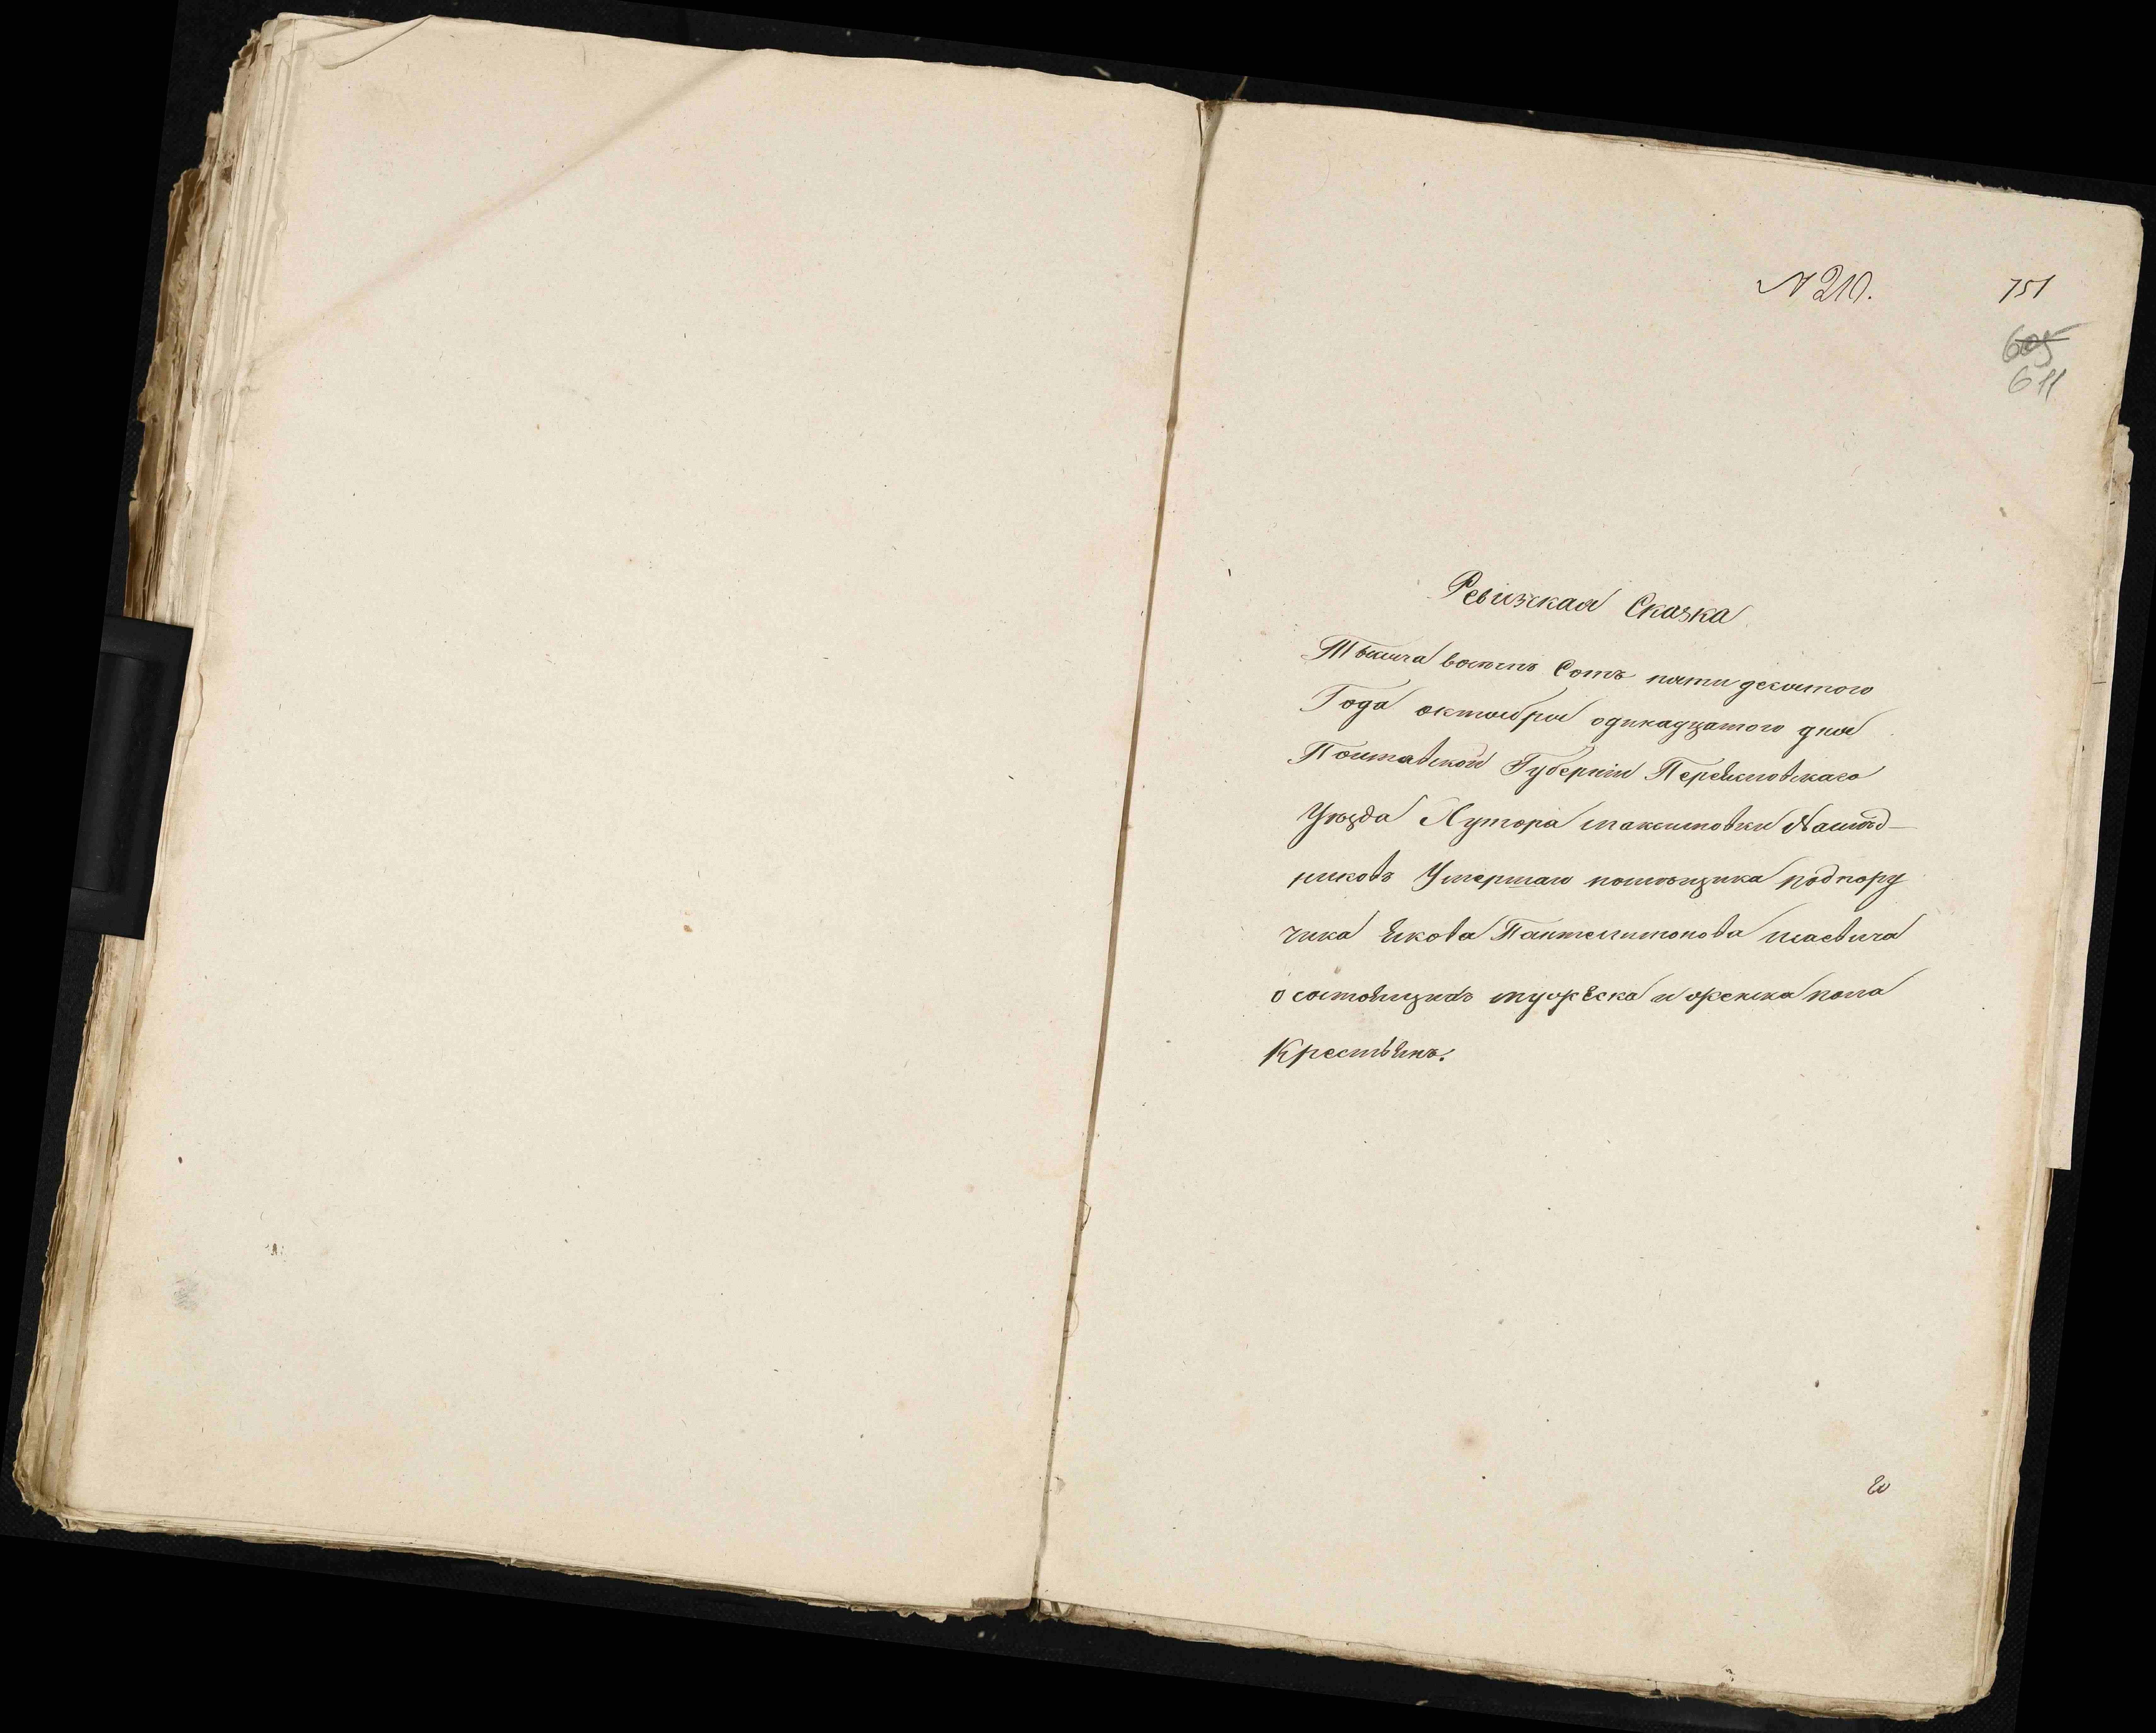 № 210.
751
605
611
Ревизская Сказка
Тысяча восемъ Сотъ пяти десятого
Года октября одинадцатого дня
Полтавской Губерніи Переяславскаго
Уѣзда Хутора максимовки Наслѣд-
никовъ Умершаго помѣщика подпору
чика Якова Пантелимонова
о состоящихъ мужеска и женска пола
Крестьянъ.